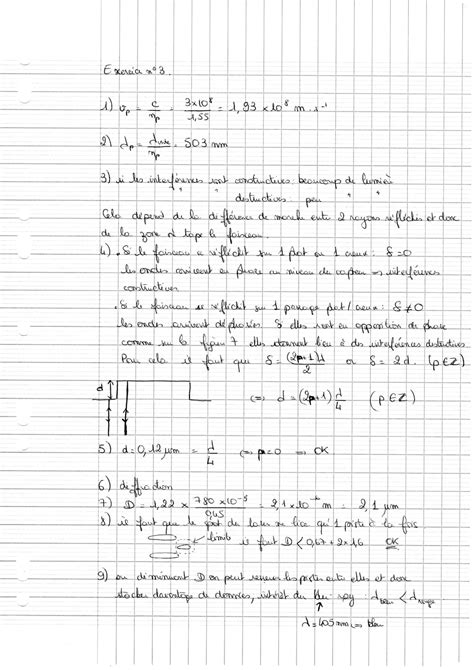 Exercice n°3.
1) v_p = c/n_p = 3×10⁸/1,55 = 1,93 × 10⁸ m.s⁻¹
2) λ_p = λ_vide/n_p = 503 nm
3) si les interférences sont constructives beaucoup de lumière
" " " destructives peu " "
Cela dépend de la différence de marche entre 2 rayons réfléchis et donc
de la zone où tape le faisceau.
4) . Si le faisceau se réfléchit sur 1 plat ou 1 creux : δ = 0
les ondes arrivent en phase au niveau du capteur => interférences
constructives
. Si le faisceau se réfléchit sur 1 passage plat/creux : δ ≠ 0
les ondes arrivent déphasées. Si elles sont en opposition de phase
comme sur la figure 7 elles donnent lieu à des interférences destructives.
Pour cela il faut que δ = (2p+1)λ/2 or δ = 2d. (p∈Z)
d
<=> d = (2p+1) λ/4 (p∈Z)
5) d = 0,12 µm = λ/4 <=> p=0 => OK
6) diffraction
7) D = 1,22 × 780×10⁻⁹/0,45 = 2,1 × 10⁻⁶ m = 2,1 µm
8) il faut que le spot de laser ne lise qu'1 piste à la fois
limite il faut D < 0,67 + 2×1,6 OK
9) en diminuant D on peut resserrer les pistes entre elles et donc
stocker davantage de données, intérêt du blu-ray : λ_bleu < λ_rouge
λ = 405 nm => bleu